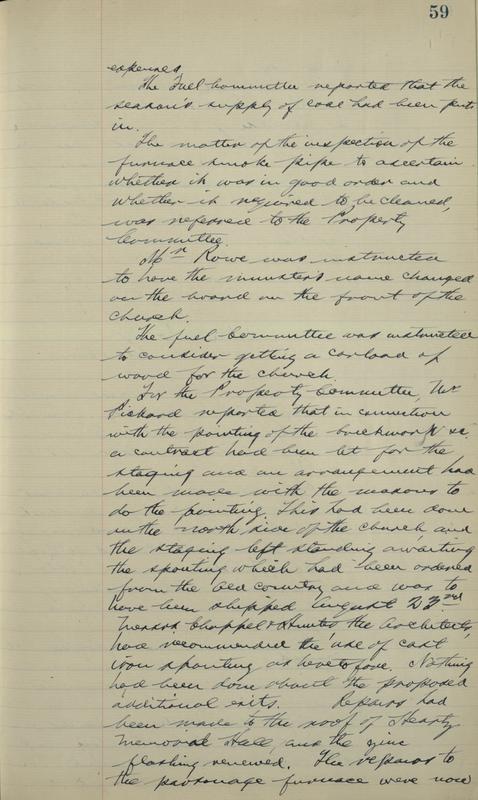 59
expenses
The Fuel Committee reported that the
season's supply of coal had been put
in.
The matter of the inspection of the
furnace smoke pipe to ascertain
whether it was in good order and
whether it required to be cleaned,
was referred to the Property
Committee.
Mr Rowe was instructed
to have the minister's name changed
on the board on the front of the
church.
The fuel Committee was instructed
to consider getting a carload of
wood for the church
For the Property Committee, Mr
Pickard reported that in connection
with the pointing of the brickwork &c
a contract had been let for the
staging and an arrangement had
been made with the masons to
do the pointing. This had been done
on the north side of the church, and
the staging left standing awaiting
the spouting which had been ordered
from the Old Country and was to
have been shipped August 23rd
Messrs Chappel & Hunter the Architects,
had recommended the use of cast
iron spouting as heretofore. Nothing
had been done about the proposed
additional exits. Repairs had
been made to the roof of Heartz
Memorial Hall, and the zinc
flashing renewed. The repairs to
the parsonage furnace were now